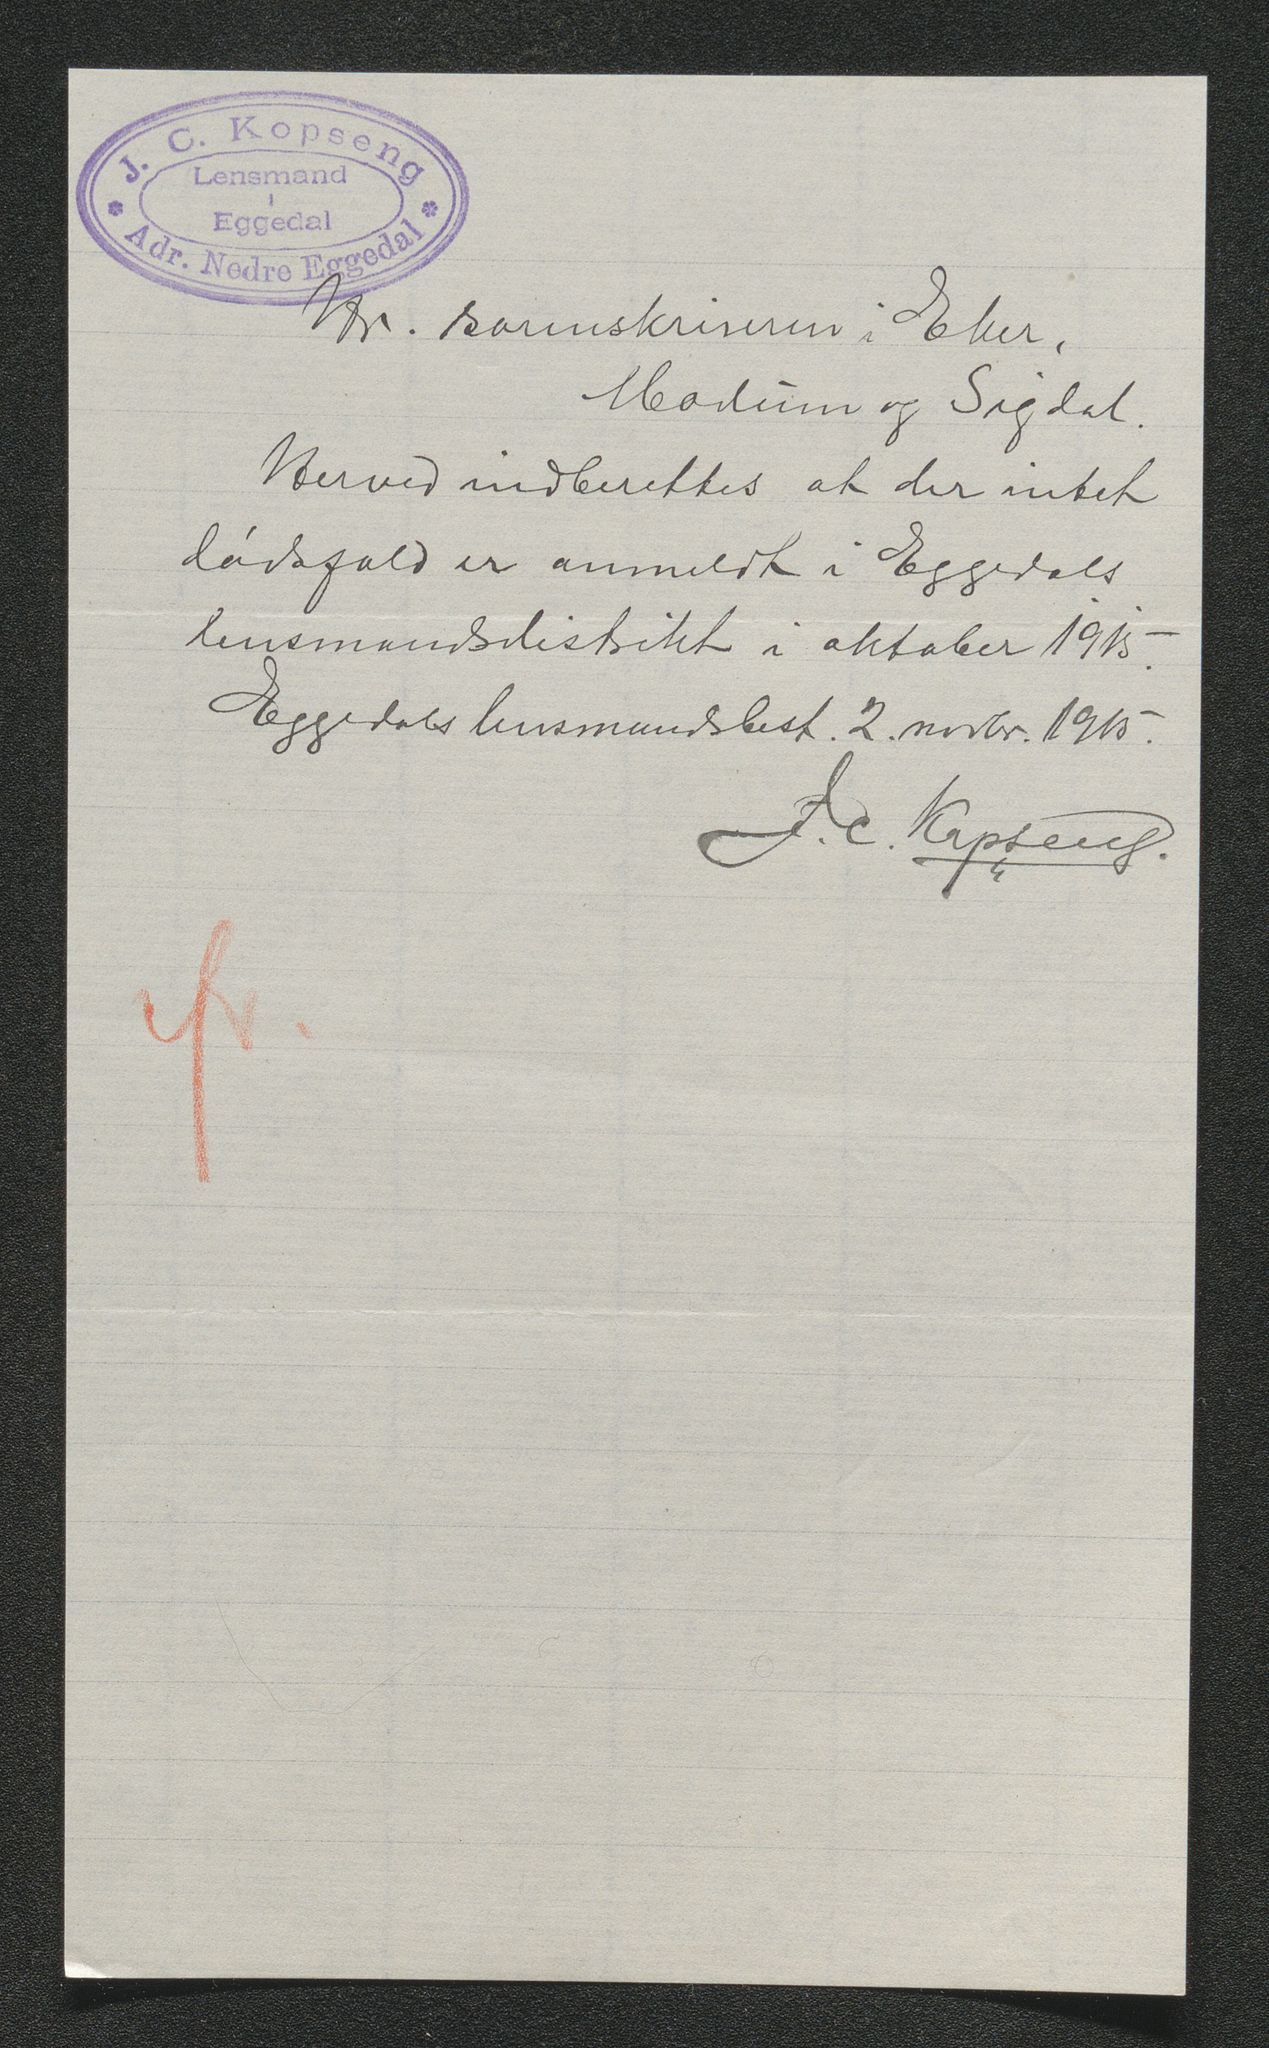 J. C. Kopseng
Lensmand
i
Eggedal
Adr. Nedre Eggedal
Hr. sorenskriveren i Eker,
Modum og Sigdal.
Herved indberettes at der intet
dødsfald er anmeldt i Eggedals
lensmandsdistrikt i oktober 1915.
Eggedals lensmandsbest. 2. novbr. 1915.
J. C. Kopseng.